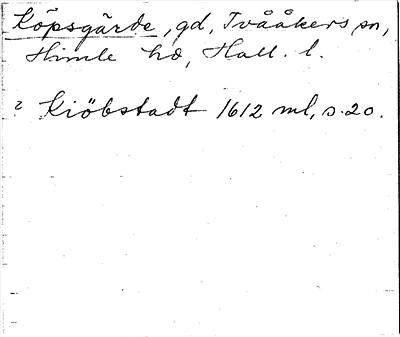 Köpsgärde, gd, Tvååkers sn,
Himle hd, Hall. l.
? Kiöbstadt 1612 ml, s. 20.